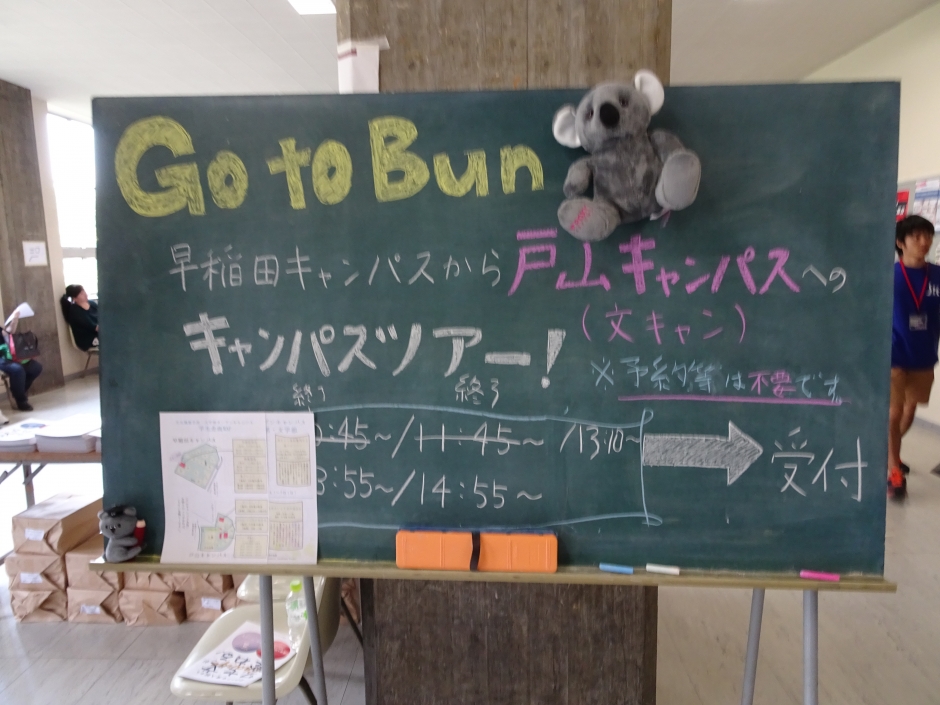 Go to Bun
早稲田キャンパスから戸山キャンパスへの
(文キャン)
キャンパスツアー!
※予約等は不要です
終了 終了
0:45~/11:45~ /13:10~
3:55~/14:55~
受付